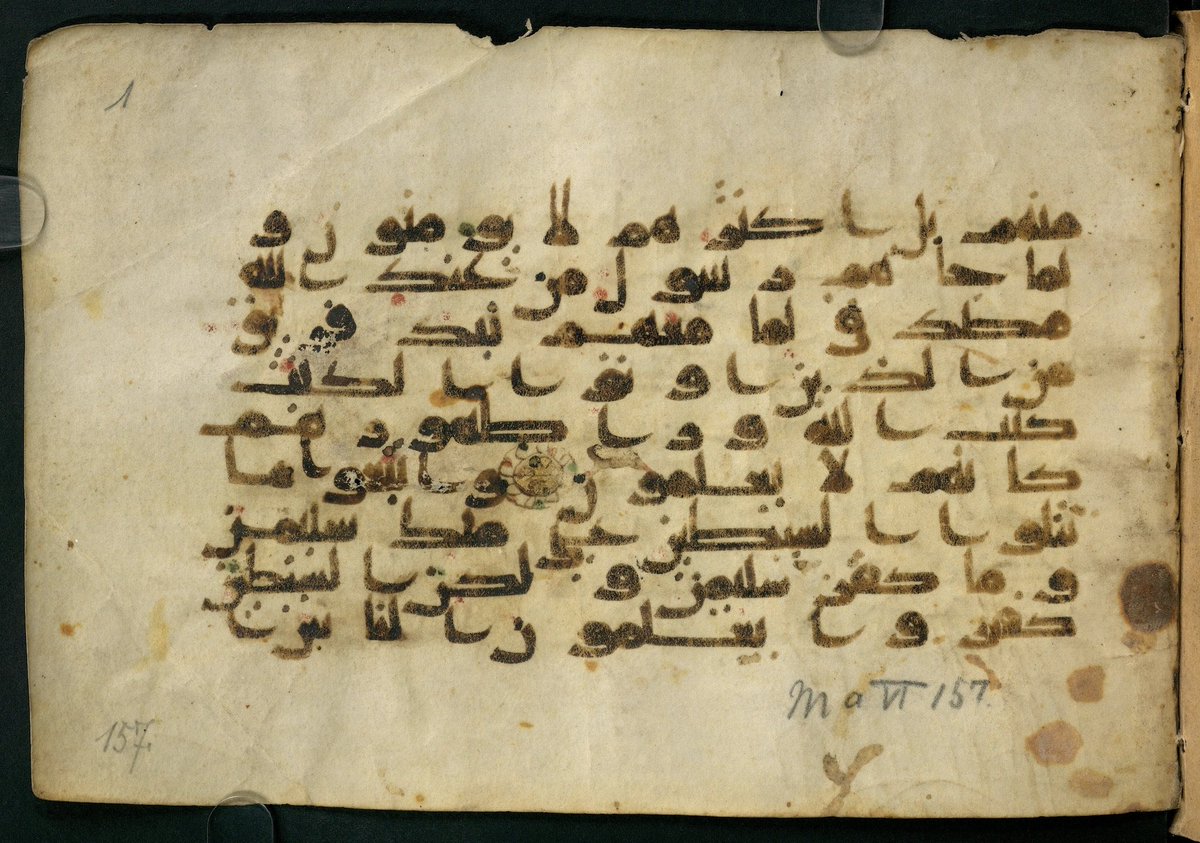 1
منهم بل اكثرهم لا يومنون و
لما جاهم رسول من عند الله
مصدق لما معهم نبذ فريق
من الذين اوتوا الكتب
كتب الله ورا ظهورهم
كانهم لا يعلمون واتبعوا ما
تتلوا الشيطين على ملك سليمن
وما كفر سليمن ولكن الشيطين
كفروا يعلمون الناس ا
Ma VI 157.
157.